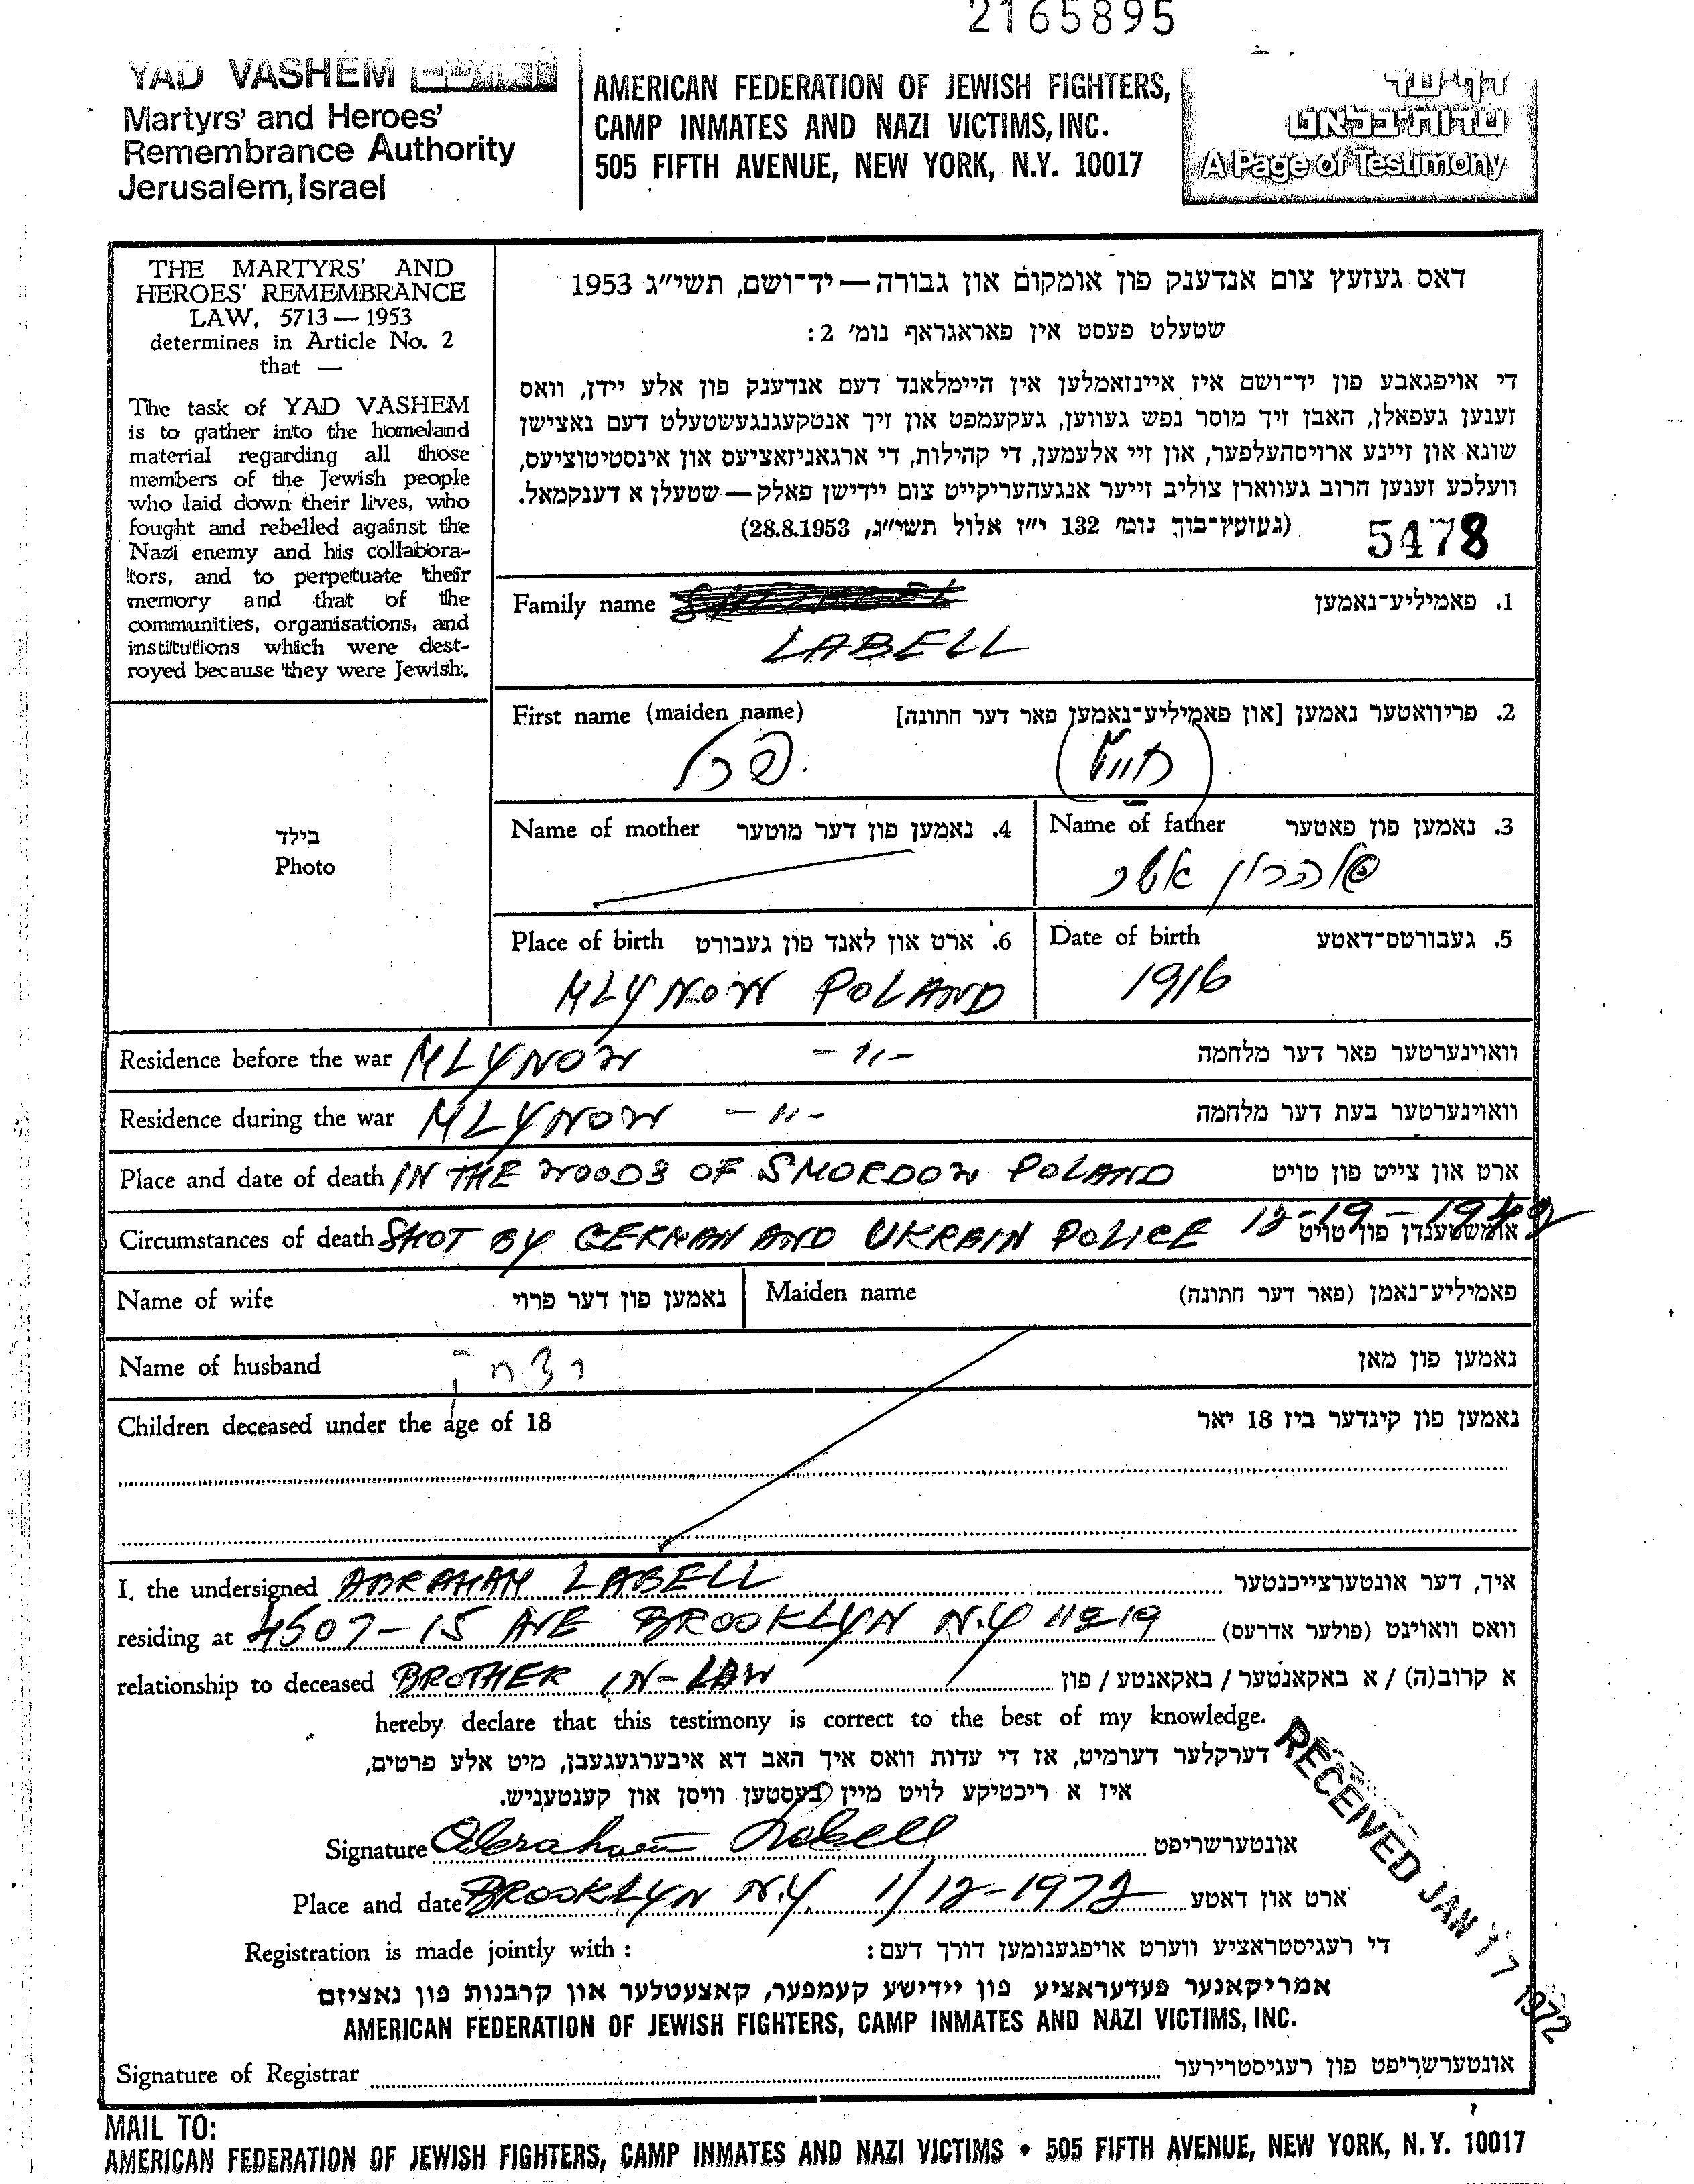 2165895
YAD VASHEM
Martyrs' and Heroes'
Remembrance Authority
Jerusalem, Israel
AMERICAN FEDERATION OF JEWISH FIGHTERS,
CAMP INMATES AND NAZI VICTIMS, INC.
505 FIFTH AVENUE, NEW YORK, N.Y. 10017
דף-עד
עדות-בלאט
A Page of Testimony
THE MARTYRS' AND
HEROES' REMEMBRANCE
LAW, 5713 — 1953
determines in Article No. 2
that —
The task of YAD VASHEM
is to gather into the homeland
material regarding all those
members of the Jewish people
who laid down their lives, who
fought and rebelled against the
Nazi enemy and his collabora-
tors, and to perpetuate their
memory and that of the
communities, organisations, and
institutions which were dest-
royed because they were Jewish.
דאס געזעץ צום אנדענק פון אומקום און גבורה — יד־ושם, תשי״ג 1953
שטעלט פעסט אין פאראגראף נומ׳ 2:
די אויפגאבע פון יד־ושם איז איינזאמלען אין היימלאנד דעם אנדענק פון אלע יידן, וואס
זענען געפאלן, האבן זיך מוסר נפש געווען, געקעמפט און זיך אנטקעגנגעשטעלט דעם נאצישן
שונא און זיינע ארויסהעלפער, און זיי אלעמען, די קהילות, די ארגאניזאציעס און אינסטיטוציעס,
וועלכע זענען חרוב געווארן צוליב זייער אנגעהעריקייט צום יידישן פאלק — שטעלן א דענקמאל.
(געזעץ־בוך נומ׳ 132 י״ז אלול תשי״ג, 28.8.1953)
5478
Family name
1. פאמיליע־נאמען
LABELL
First name (maiden name)
2. פריוואטער נאמען [און פאמיליע־נאמען פאר דער חתונה]
פרל
בילד
Photo
Name of mother 4. נאמען פון דער מוטער
Name of father 3. נאמען פון פאטער
Place of birth 6. ארט און לאנד פון געבורט
Date of birth 5. געבורטס־דאטע
MLYNOW POLAND
1916
Residence before the war MLYNOW -"- וואוינערטער פאר דער מלחמה
Residence during the war MLYNOW -"- וואוינערטער בעת דער מלחמה
Place and date of death IN THE WOODS OF SMORDOW POLAND ארט און צייט פון טויט
Circumstances of death SHOT BY GERMAN AND UKRAIN POLICE 12-19-1942 אומשטענדן פון טויט
Name of wife נאמען פון דער פרוי
Maiden name פאמיליע־נאמן (פאר דער חתונה)
Name of husband נאמען פון מאן
Children deceased under the age of 18 נאמען פון קינדער ביז 18 יאר
I, the undersigned ABRAHAM LABELL איך, דער אונטערצייכנטער
residing at 4507-15 AVE BROOKLYN N.Y 11219 וואס וואוינט (פולער אדרעס)
relationship to deceased BROTHER IN-LAW א קרוב(ה) / א באקאנטער / באקאנטע / פון
hereby declare that this testimony is correct to the best of my knowledge.
דערקלער דערמיט, אז די עדות וואס איך האב דא איבערגעגעבן, מיט אלע פרטים,
איז א ריכטיקע לויט מיין בעסטען וויסן און קענטעניש.
Signature Abraham Labell אונטערשריפט
Place and date BROOKLYN N.Y. 1/12-1972 ארט און דאטע
RECEIVED JAN 17 1972
Registration is made jointly with: די רעגיסטראציע ווערט אויפגענומען דורך דעם:
אמריקאנער פעדעראציע פון יידישע קעמפער, קאצעטלער און קרבנות פון נאציזם
AMERICAN FEDERATION OF JEWISH FIGHTERS, CAMP INMATES AND NAZI VICTIMS, INC.
Signature of Registrar אונטערשריפט פון רעגיסטרירער
MAIL TO:
AMERICAN FEDERATION OF JEWISH FIGHTERS, CAMP INMATES AND NAZI VICTIMS • 505 FIFTH AVENUE, NEW YORK, N.Y. 10017